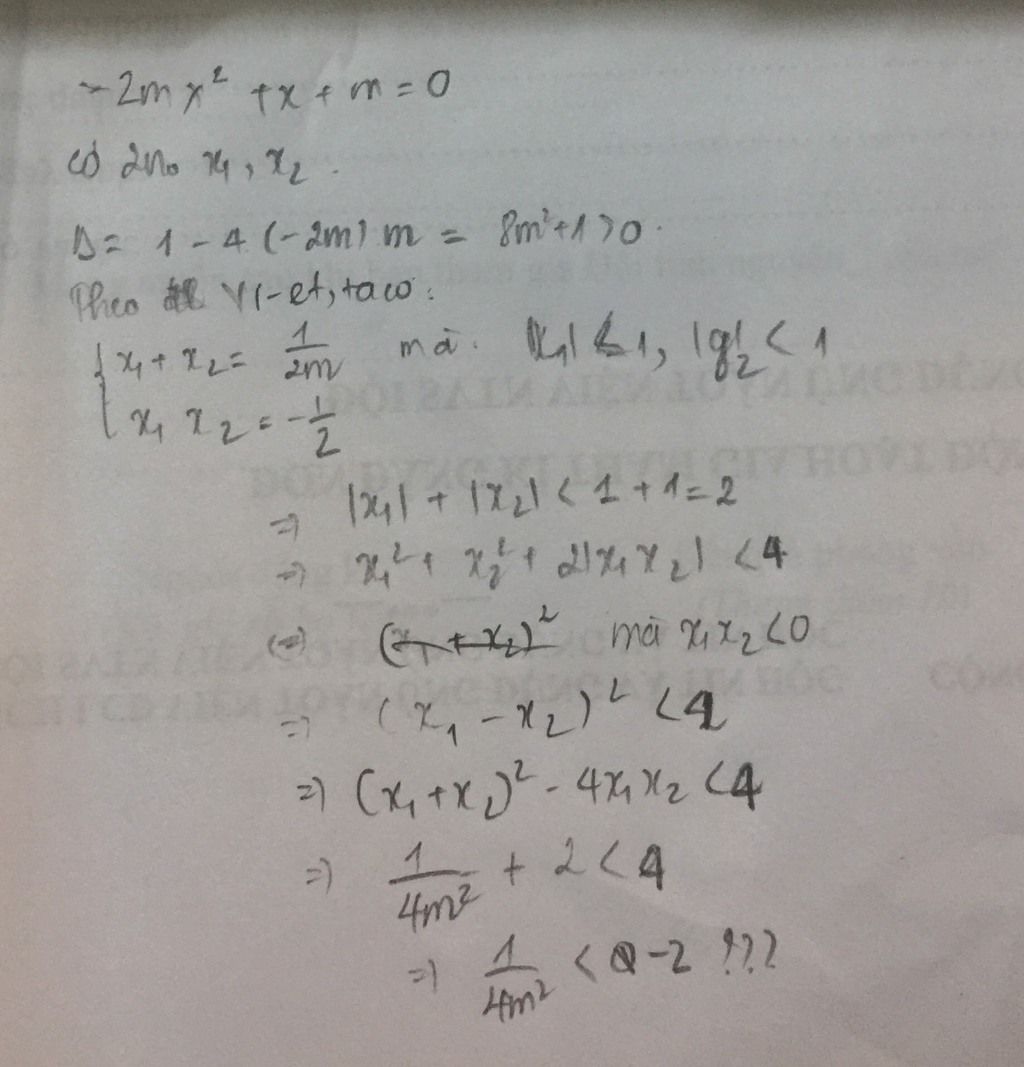 -2mx² + x + m = 0
có 2no x₁, x₂.
Δ = 1 - 4(-2m)m = 8m²+1>0.
Theo Vi-et, ta có:
{ x₁ + x₂ = 1/2m mà. |x₁| < 1, |x|₂ < 1
x₁ x₂ = -1/2
=> |x₁| + |x₂| < 1 + 1 = 2
=> x₁² + x₂² + 2|x₁x₂| < 4
(=) (x₁ + x₂)² mà x₁x₂<0
=> (x₁ - x₂)² < 4
=> (x₁+x₂)² - 4x₁x₂ < 4
=> 1/4m² + 2 < 4
=> 1/4m² < -2 !??